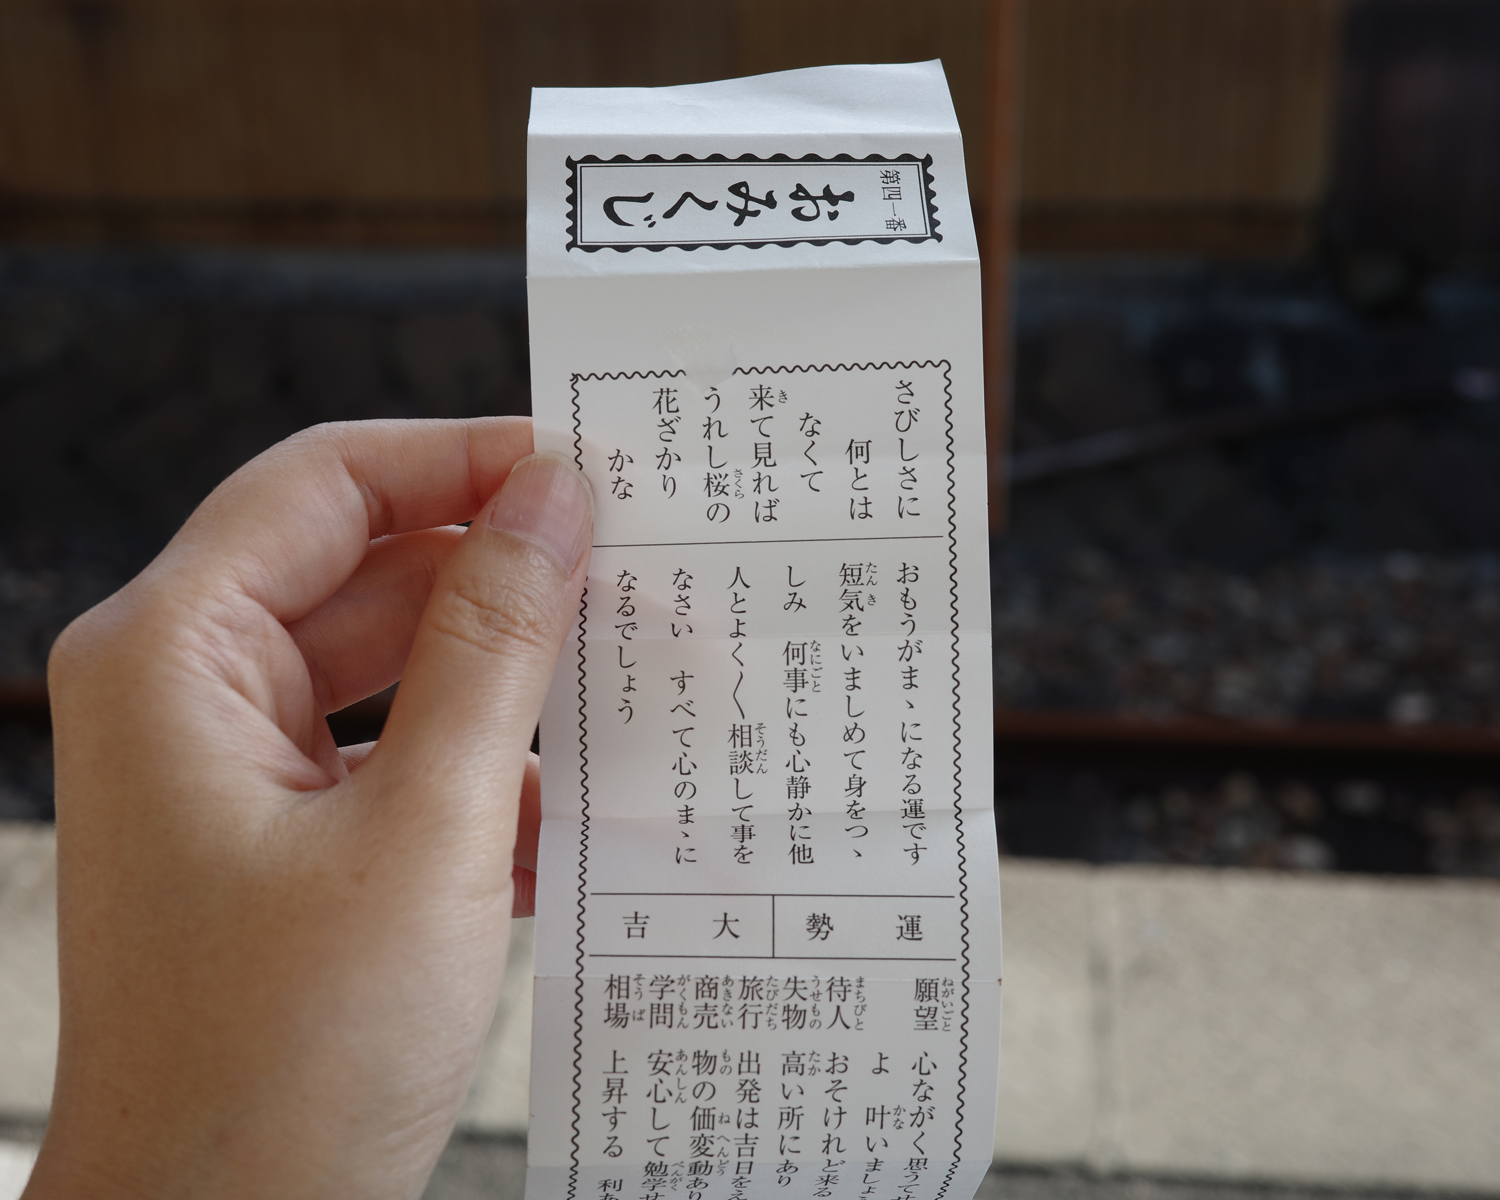 第四一番
おみくじ
さびしさに
何とは
なくて
来て見れば
うれし桜の
花ざかり
かな
おもうがまゝになる運です
短気をいましめて身をつゝ
しみ　何事にも心静かに他
人とよく〳〵相談して事を
なさい　すべて心のまゝに
なるでしょう
運勢
大吉
願望　心ながく思うてせ
よ　叶いましょ
待人　おそけれど来る
失物　高い所にあり
旅行　出発は吉日をえ
商売　物の価変動あり
学問　安心して勉学せ
相場　上昇する　利あ